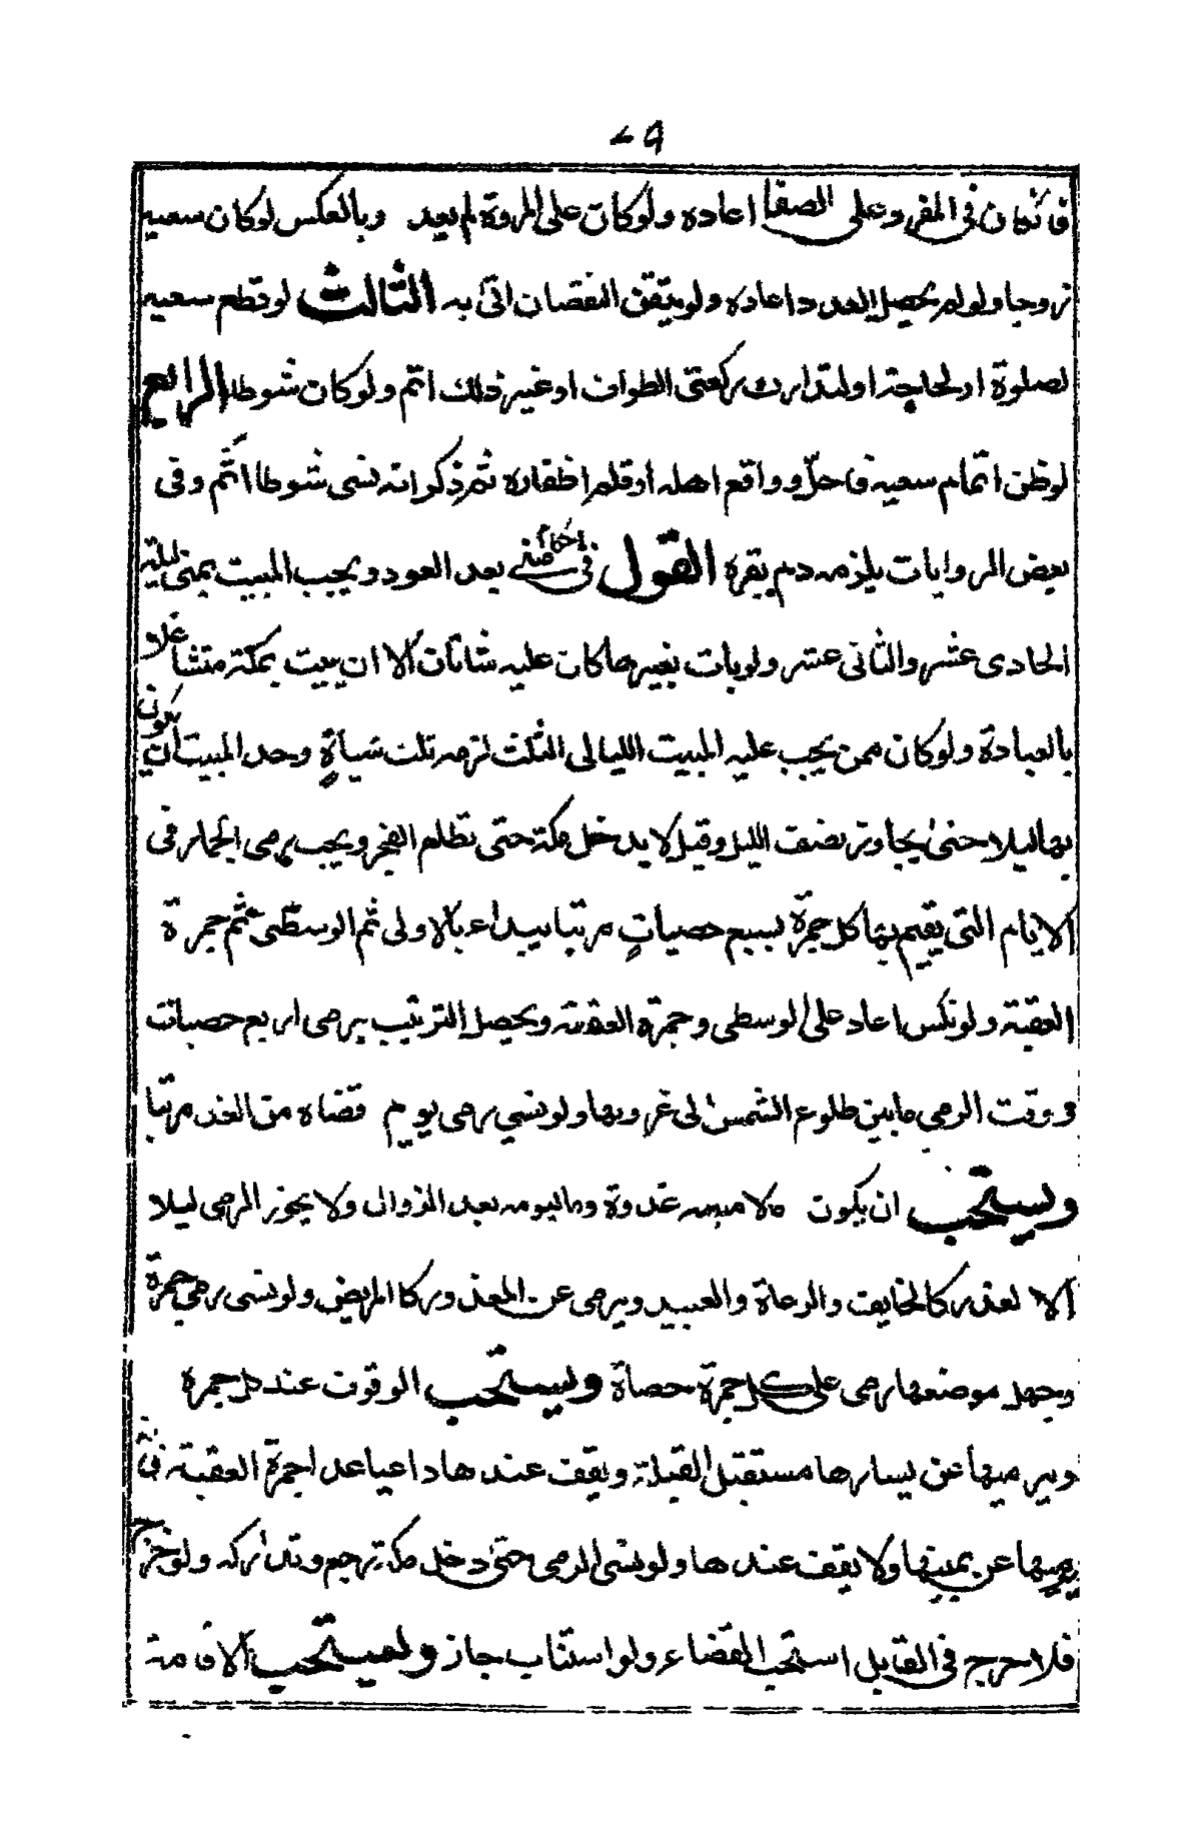 ٧٩
فان كان فى المفرد وعلى الصفا اعاده ولو كان على المروة لم يعد وبالعكس لو كان سعيه
زوجا ولو لم يحصل العدد اعاده ولو يتقن النقصان اتى به الثالث لو قطع سعيه
لصلوة او لحاجة او لتدارك ركعتى الطواف او غير ذلك اتم ولو كان شوطا الرابع
لو ظن اتمام سعيه فاحل وواقع اهله او قلم اظفاره ثم ذكر انه نسى شوطا اتم وفى
بعض الروايات يلزمه دم بقرة القول فى احكام منى بعد العود ويجب المبيت بمنى ليلة
الحادى عشر والثانى عشر ولو بات بغيرها كان عليه شاتان الا ان يبيت بمكة متشاغلا
بالعبادة ولو كان ممن يجب عليه المبيت الليالى الثلث لزمه ثلث شياة وحد المبيت ان يكون
بها ليلا حتى يجاوز نصف الليل وقيل لا يدخل مكة حتى تطلع الفجر ويجب رمى الجمار فى
الايام التى يقيم بها كل جمرة بسبع حصيات مرتبا يبداء بالاولى ثم الوسطى ثم جمرة
العقبة ولو نكس اعاد على الوسطى وجمرة العقبة ويحصل الترتيب برمى اربع حصيات
ووقت الرمى ما بين طلوع الشمس الى غروبها ولو نسي رمى يوم قضاه من الغد مرتبا
ويستحب ان يكون ما لامسه غدوة وما ليومه بعد الزوال ولا يجوز الرمى ليلا
الا لعذر كالخايف والرعاة والعبيد ويرمى عن المعذور كالمريض ولو نسى رمى جمرة
وجهل موضعها رمى على كل جمرة حصاة ويستحب الوقوف عند كل جمرة
ويرميها عن يسارها مستقبل القبلة ويقف عندها داعيا عدا جمرة العقبة فانه
يرميها عن يمينها ولا يقف عندها ولو نسى الرمى حتى دخل مكة رجع وتداركه ولو خرج
فلا حرج فى القابل استحب القضاء ولو استناب جاز ويستحب الاقامة